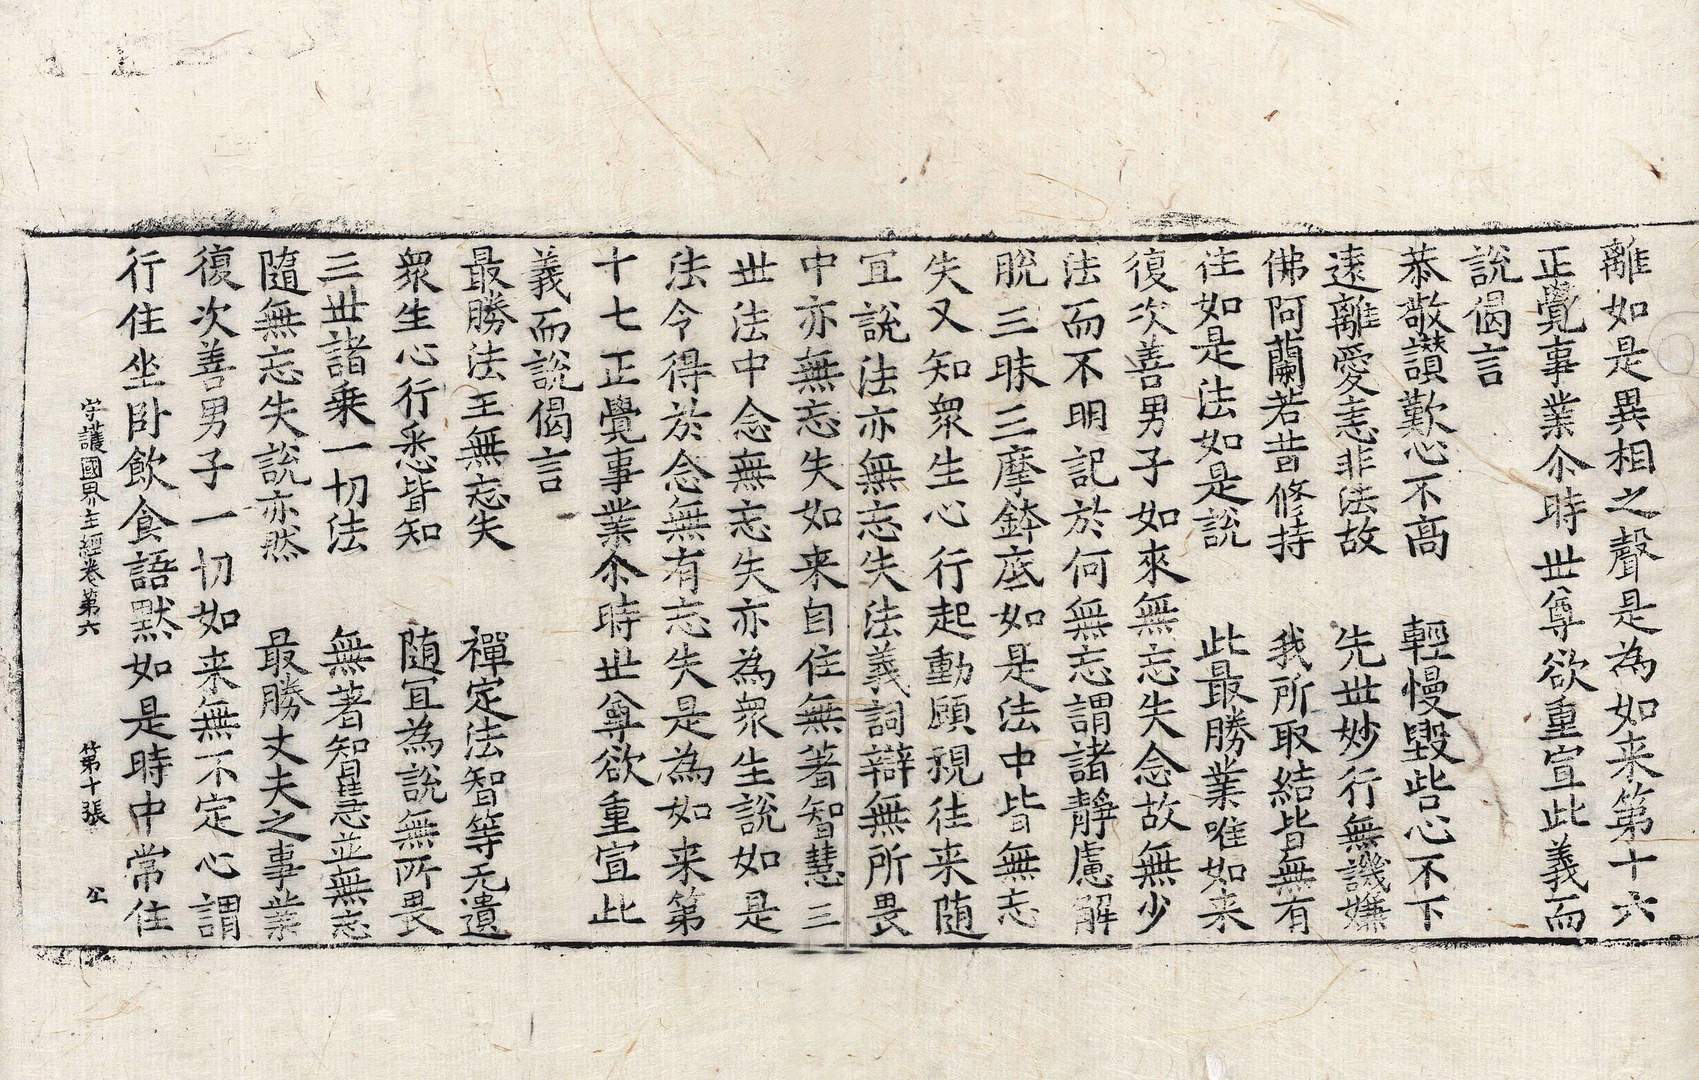 離如是異相之聲是為如来第十六
正覺事業尒時世尊欲重宣此義而
說偈言
恭敬讃歎心不高　輕慢毀呰心不下
遠離愛恚非法故　先世妙行無譏嫌
佛阿蘭若昔修持　我所取結皆無有
住如是法如是說　此最勝業唯如来
復次善男子如來無忘失念故無少
法而不明記於何無忘謂諸靜慮解
脫三昧三摩鉢底如是法中皆無忘
失又知眾生心行起動顧視往来随
冝說法亦無忘失法義詞辯無所畏
中亦無忘失如来自住無著智慧三
世法中念無忘失亦為眾生說如是
法令得於念無有忘失是為如来第
十七正覺事業尒時世尊欲重宣此
義而說偈言
最勝法王無忘失　禪定法智等无遺
衆生心行悉皆知　随冝為說無所畏
三世諸乗一切法　無著智慧並無忘
隨無忘失說亦然　最勝丈夫之事業
復次善男子一切如来無不定心謂
行住坐卧飲食語黙如是時中常住
守護國界主經卷第六　第十張　公